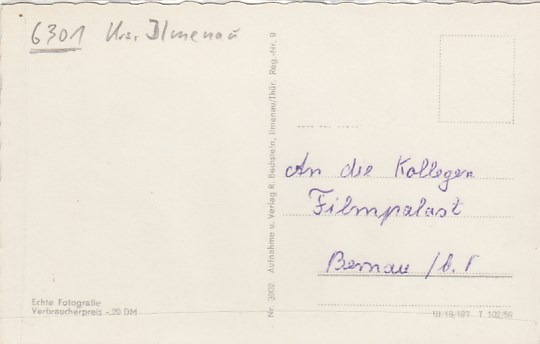 6301 Krs. Ilmenau
Echte Fotografie
Verbraucherpreis -.20 DM
Nr. 3902 Aufnahme u. Verlag R. Bechstein, Ilmenau/Thür. Reg.-Nr. 9
An die Kollegen
Filmpalast
Bernau / b. 
III/18/197 T 102/59